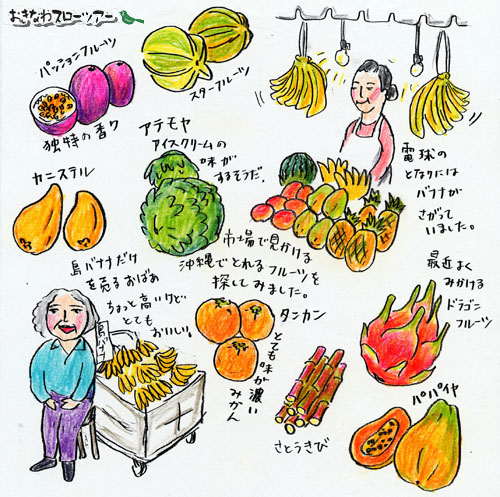 おきなわスローツアー
パッションフルーツ
独特の香り
スターフルーツ
アテモヤ
アイスクリームの
味が
するそうだ。
電球の
となりには
バナナが
さがって
いました。
カニステル
市場で見かける
沖縄でとれるフルーツを
探してみました。
島バナナだけ
を売るおばぁ
ちょっと高いけど…
とても
おいしい。
島バナナ
タンカン
とても味が濃い
みかん
さとうきび
最近よく
みかける
ドラゴン
フルーツ
パパイヤ